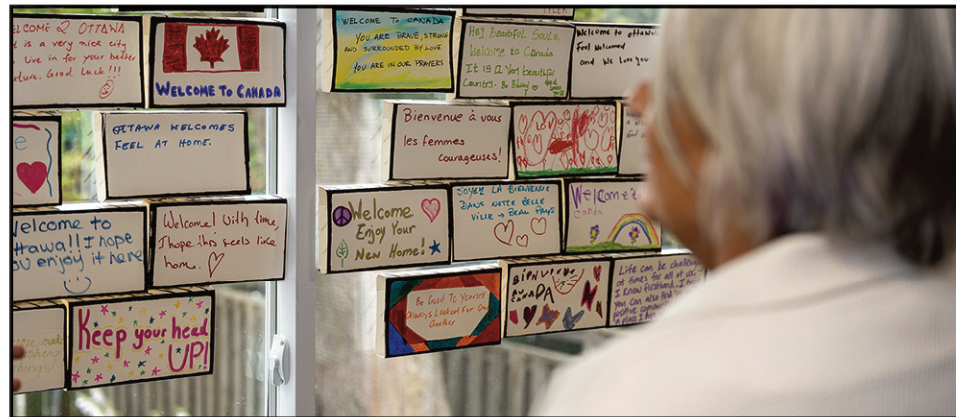 WELCOME 2 OTTAWA
is a very nice city
live in for your better
Good Luck!!!
WELCOME TO CANADA
OTTAWA WELCOMES
FEEL AT HOME.
Welcome to
Ottawa!! I hope
you enjoy it here
Welcome! With time,
I hope this feels like
home.
Keep your head
UP!
TYLER
WELCOME TO CANADA
YOU ARE BRAVE, STRONG
AND SURROUNDED BY LOVE
YOU ARE IN OUR PRAYERS
Hey Beautiful Souls,
Welcome to Canada
It is a Very beautiful
Country.
Welcome to Ottawa
Feel Welcomed
And We Love you.
Bienvenue à vous
les femmes
courageuses!
Welcome
Enjoy Your
New Home!
SOYEZ LA BIENVENUE
DANS NOTRE BELLE
VILLE → BEAU PAYS
Welcome to
Be Good To Yourself
Always Lookout For One
Another
BIENVENUE
au CANADA
Life can be challeng
at times for all of us.
I know firsthand.
you can also find
positive
a place